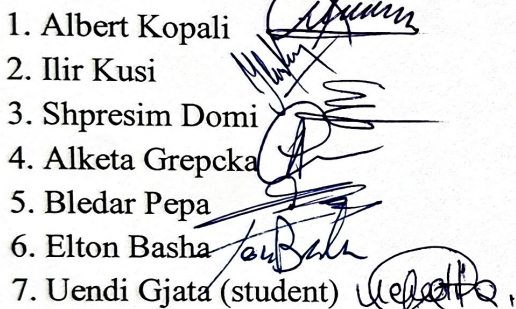 1. Albert Kopali
2. Ilir Kusi
3. Shpresim Domi
4. Alketa Grepcka
5. Bledar Pepa
6. Elton Basha
7. Uendi Gjata (student)